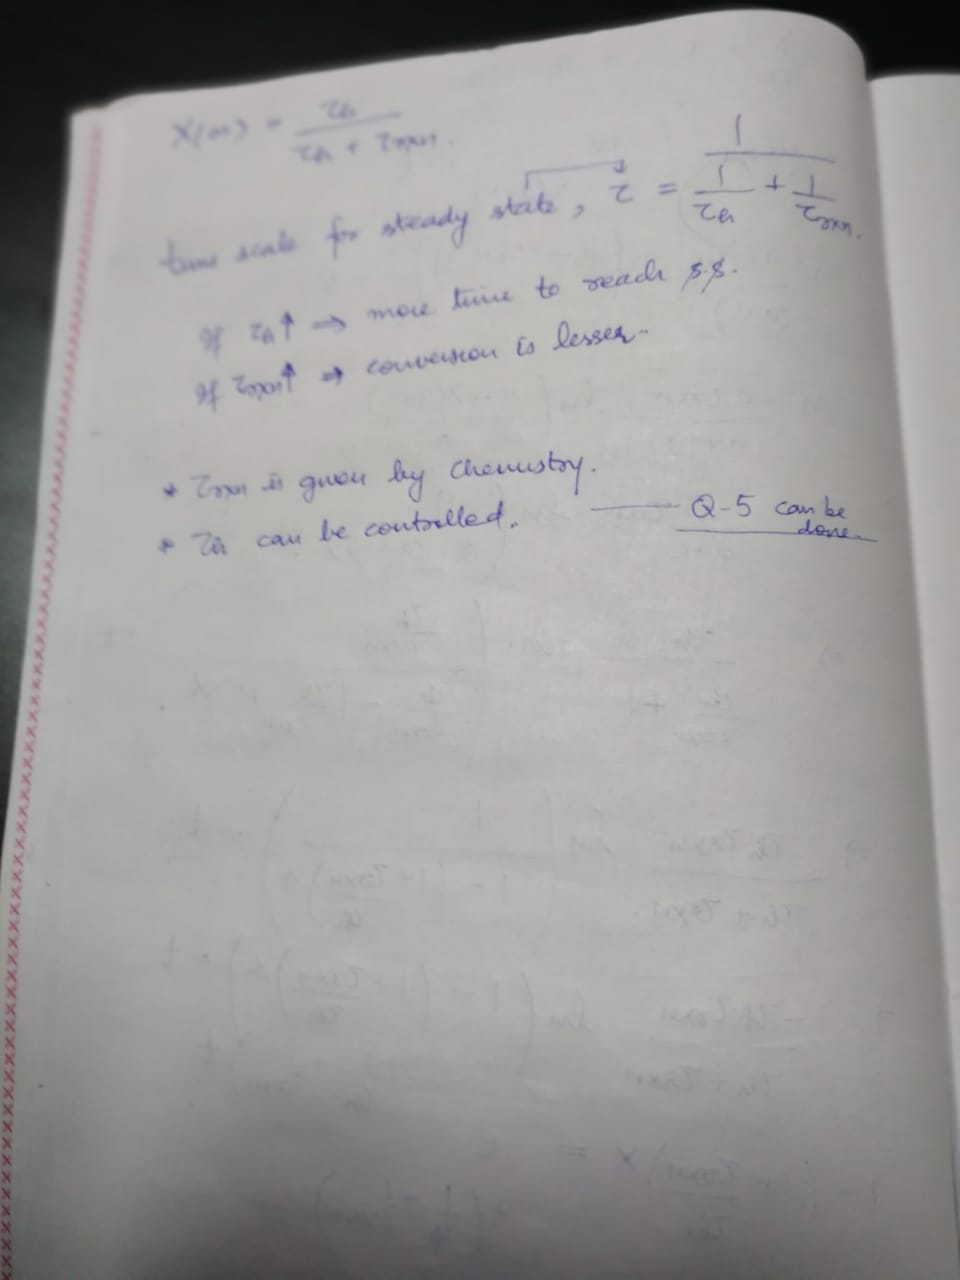 X(∞) = τh / (τh + τrxn).
time scale for steady state, τ = 1 / (1/τh + 1/τrxn).
If τh↑ ⇒ more time to reach s.s.
If τrxn↑ ⇒ conversion is lesser.
* τrxn is given by Chemistry.
* τh can be controlled. —— Q-5 can be
done.